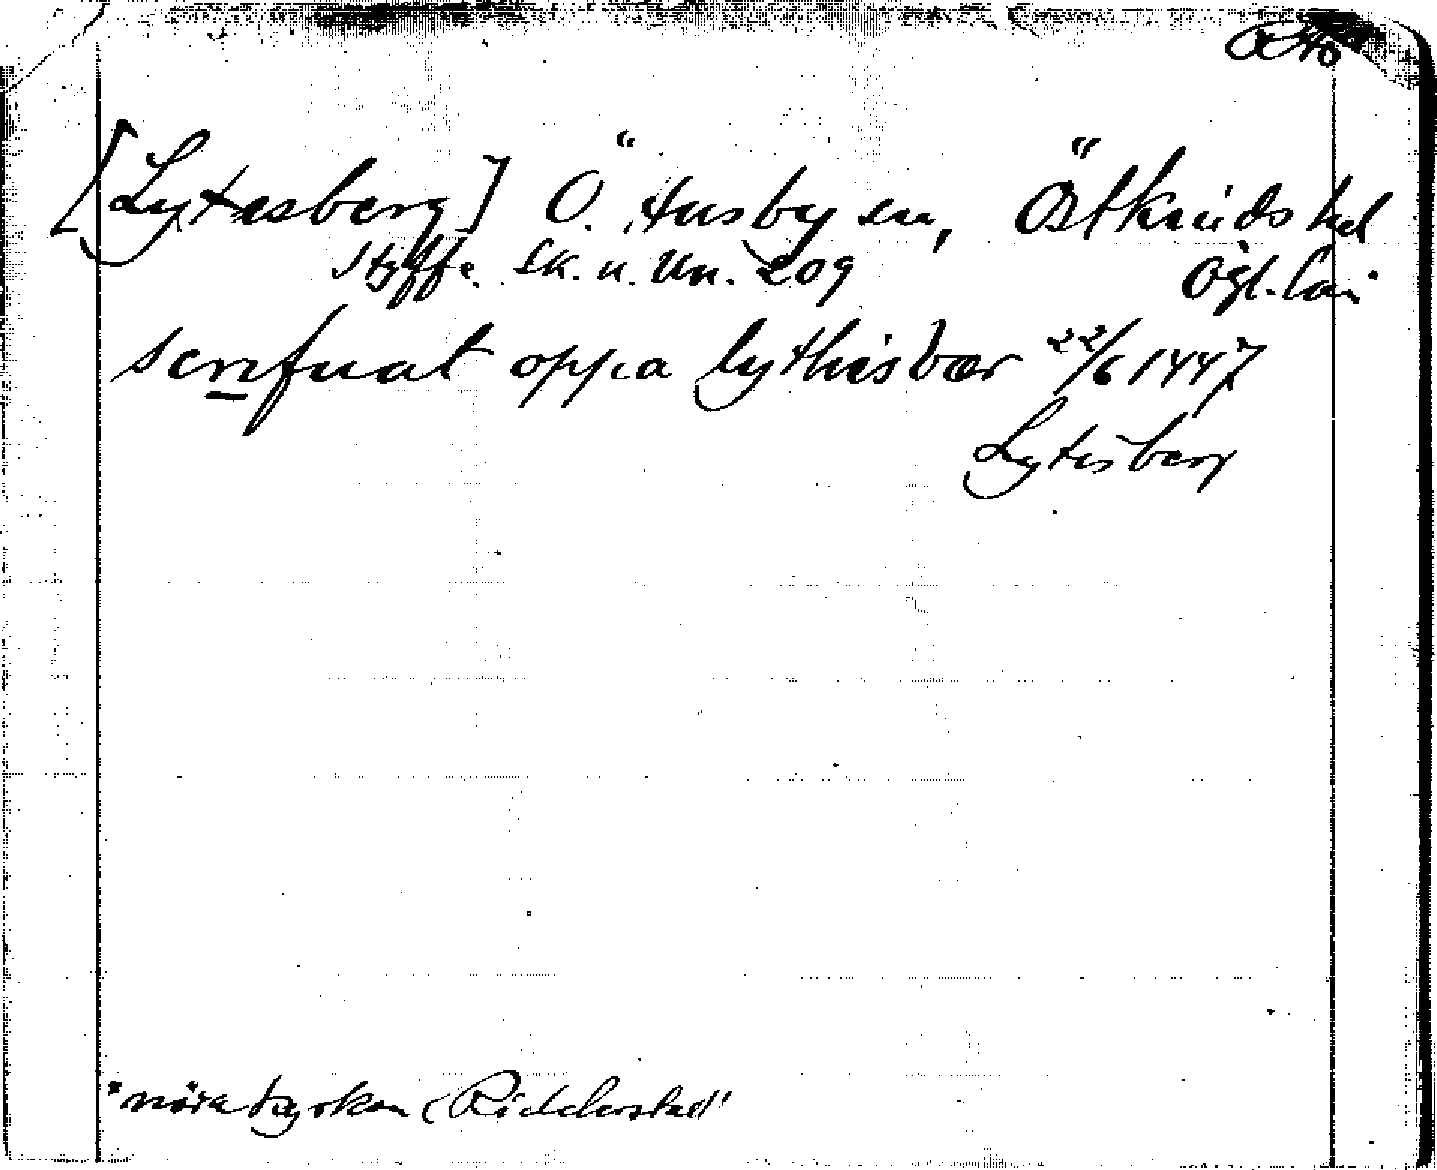 [Lytesberg] Ö. Husby sn, Östkinds hd
Styffe. Sk. u. Un. 209 Ögl. län
scrifuat oppa lythisbær 22/6 1447
Lytisberg
"nära kyrkan (Ridderstad"